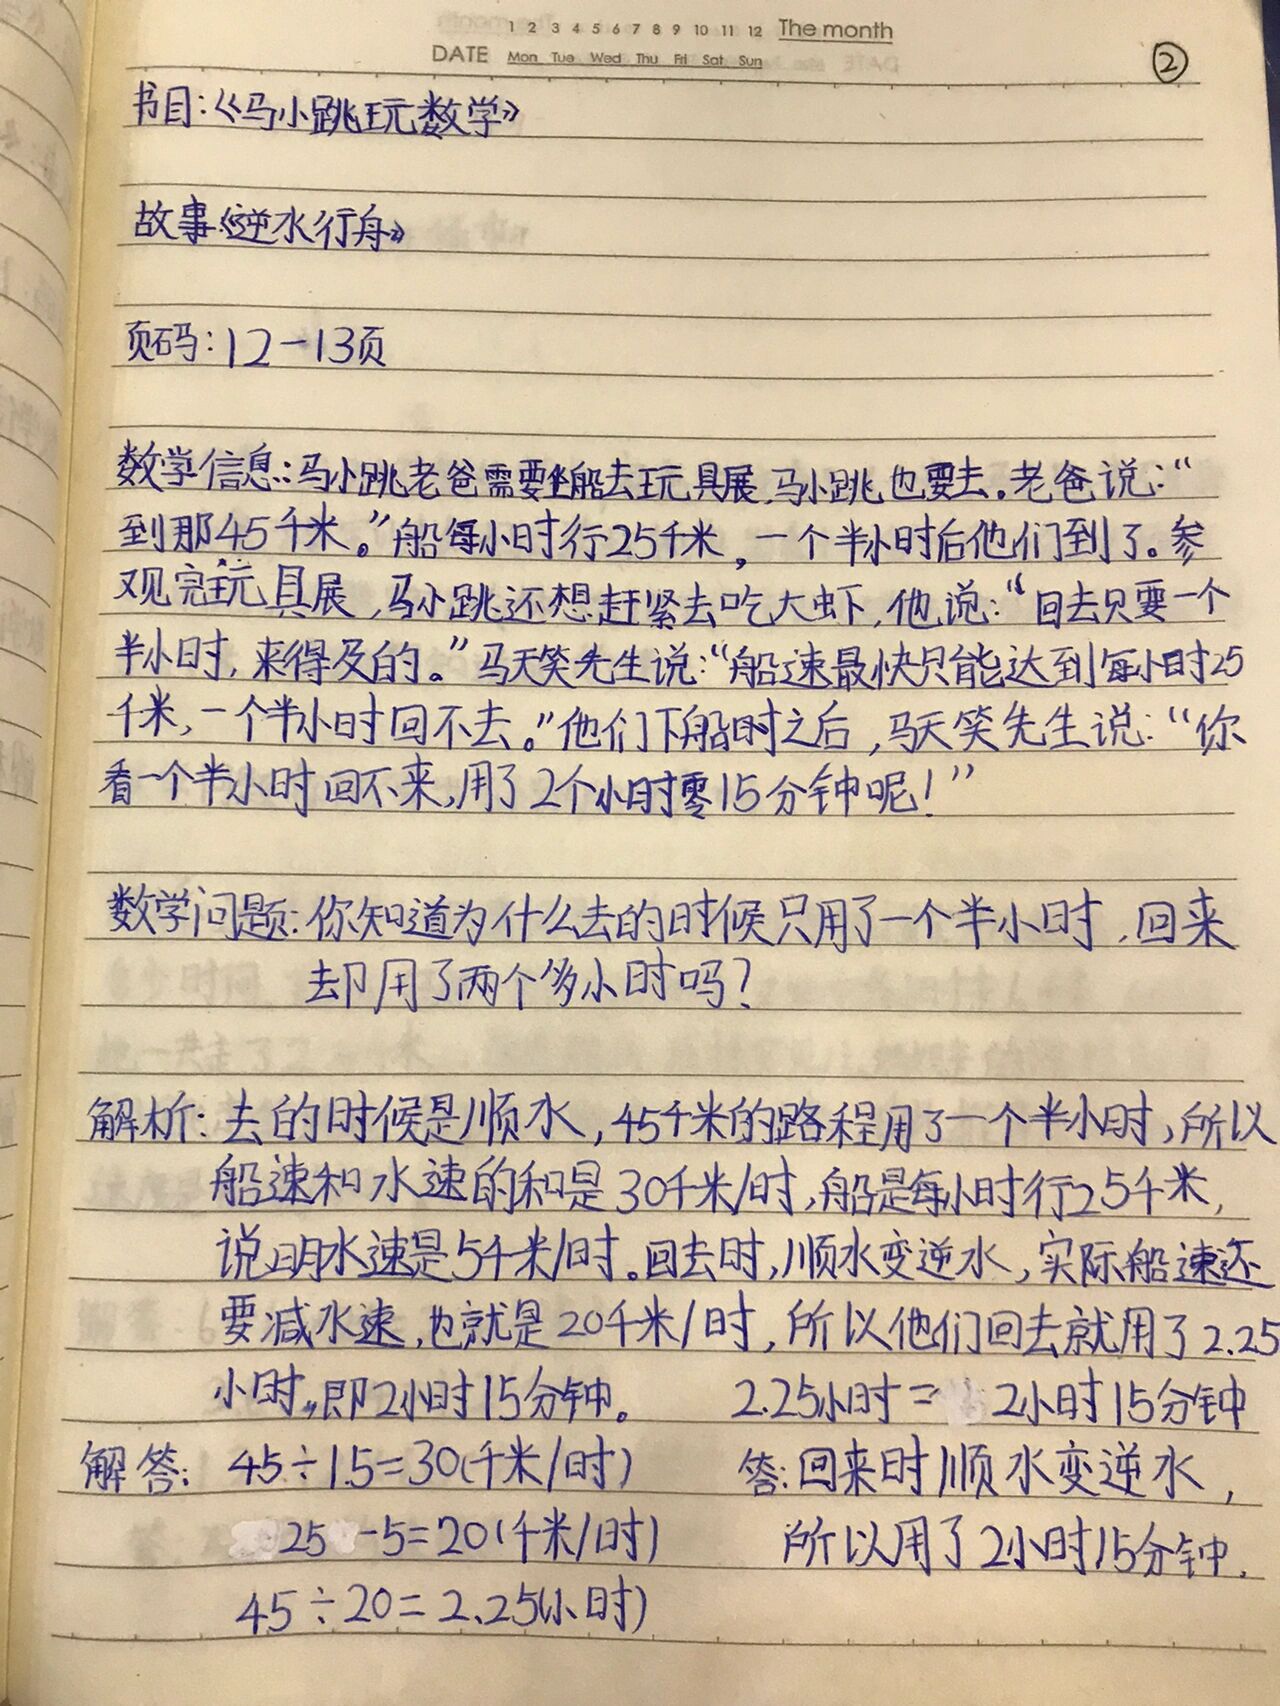 1 2 3 4 5 6 7 8 9 10 11 12 The month
DATE Mon Tue Wed Thu Fri Sat Sun
②
书目:《马小跳玩数学》
故事《逆水行舟》
页码:12-13页
数学信息:马小跳老爸需要坐船去玩具展,马小跳也要去。老爸说:“
到那45千米。”船每小时行25千米,一个半小时后他们到了。参
观完玩具展,马小跳还想赶紧去吃大虾,他说:“回去只要一个
半小时,来得及的。”马天笑先生说:“船速最快只能达到每小时25
千米,一个半小时回不去。”他们下船时之后,马天笑先生说:“你
看一个半小时回不来,用了2个小时零15分钟呢!”
数学问题:你知道为什么去的时候只用了一个半小时,回来
却用了两个多小时吗?
解析:去的时候是顺水,45千米的路程用了一个半小时,所以
船速和水速的和是30千米/时,船是每小时行25千米,
说明水速是5千米/时。回去时,顺水变逆水,实际船速还
要减水速,也就是20千米/时,所以他们回去就用了2.25
小时,即2小时15分钟。 2.25小时=2小时15分钟
解答:45÷1.5=30(千米/时) 答:回来时顺水变逆水,
25-5=20(千米/时) 所以用了2小时15分钟.
45÷20=2.25(小时)